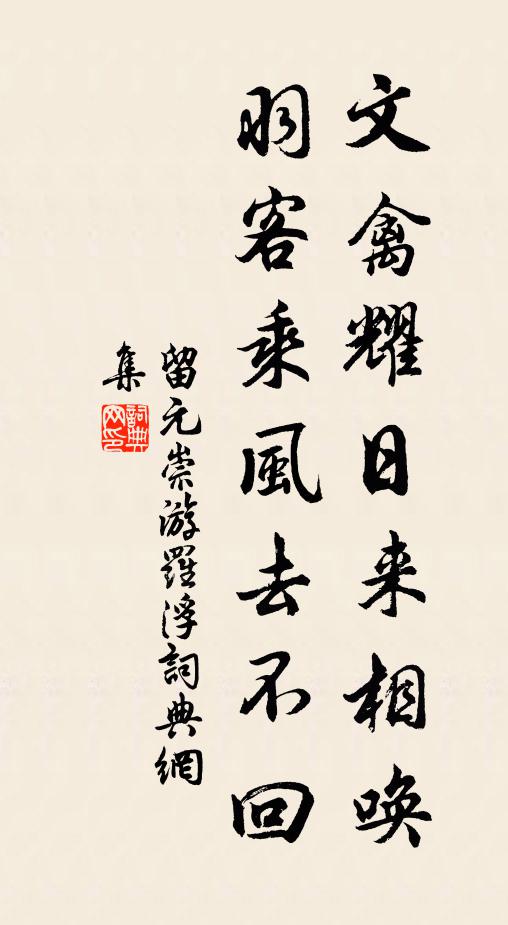 文禽耀日来相唤
羽客乘風去不回
留元崇游羅浮詞典網
集
詞典網印